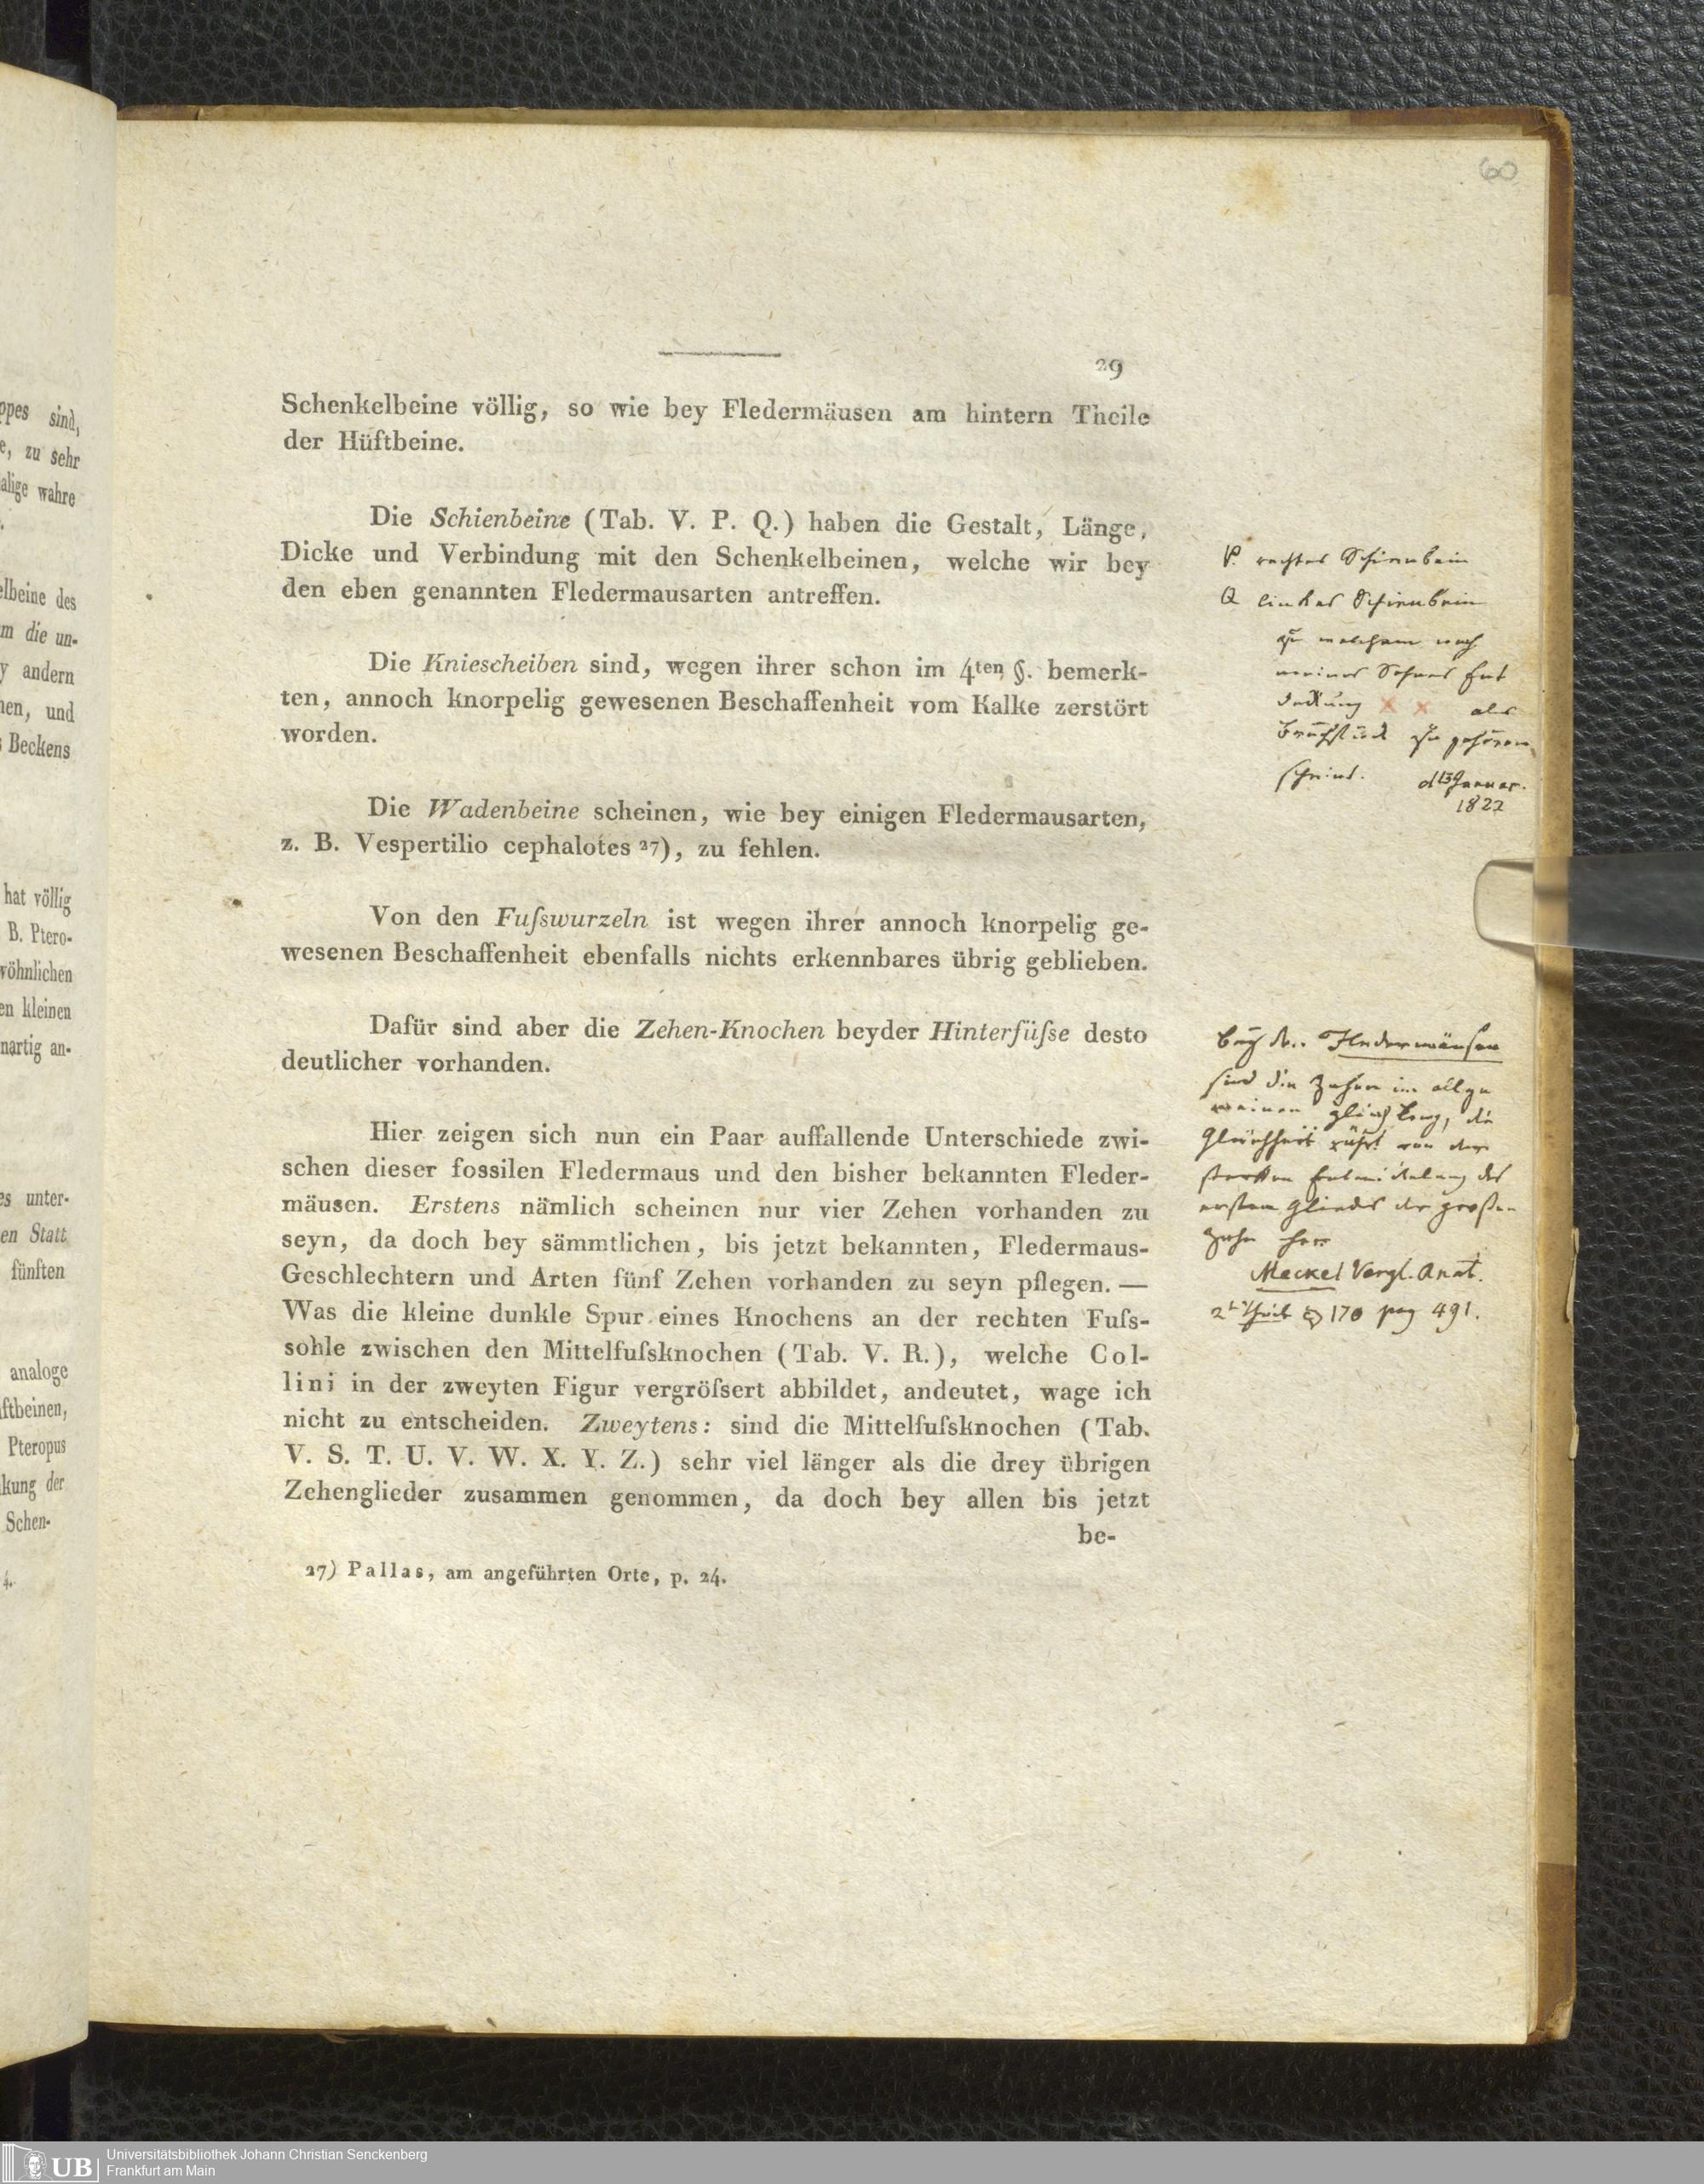 60
29
Schenkelbeine völlig, so wie bey Fledermäusen am hintern Theile
der Hüftbeine.
Die Schienbeine (Tab. V. P. Q.) haben die Gestalt, Länge,
Dicke und Verbindung mit den Schenkelbeinen, welche wir bey
den eben genannten Fledermausarten antreffen.
Die Kniescheiben sind, wegen ihrer schon im 4ten §. bemerk-
ten, annoch knorpelig gewesenen Beschaffenheit vom Kalke zerstört
worden.
Die Wadenbeine scheinen, wie bey einigen Fledermausarten,
z. B. Vespertilio cephalotes 27), zu fehlen.
Von den Fuſswurzeln ist wegen ihrer annoch knorpelig ge-
wesenen Beschaffenheit ebenfalls nichts erkennbares übrig geblieben.
Dafür sind aber die Zehen-Knochen beyder Hinterfüſse desto
deutlicher vorhanden.
Hier zeigen sich nun ein Paar auffallende Unterschiede zwi-
schen dieser fossilen Fledermaus und den bisher bekannten Fleder-
mäusen. Erstens nämlich scheinen nur vier Zehen vorhanden zu
seyn, da doch bey sämmtlichen, bis jetzt bekannten, Fledermaus-
Geschlechtern und Arten fünf Zehen vorhanden zu seyn pflegen. —
Was die kleine dunkle Spur eines Knochens an der rechten Fuſs-
sohle zwischen den Mittelfuſsknochen (Tab. V. R.), welche Col-
lini in der zweyten Figur vergröſsert abbildet, andeutet, wage ich
nicht zu entscheiden. Zweytens: sind die Mittelfuſsknochen (Tab.
V. S. T. U. V. W. X. Y. Z.) sehr viel länger als die drey übrigen
Zehenglieder zusammen genommen, da doch bey allen bis jetzt
be-
27) Pallas, am angeführten Orte, p. 24.
P. rechtes Schienbein
Q linkes Schienbein
zu welchem nach
meines Sohnes Ent
deckung × × als
Bruchstück zu gehören
scheint. d 13 Januar.
1822
bey den Fledermäusen
sind die Zehen im allge
meinen gleich lang, die
Gleichheit rührt von der
starken Entwickelung des
ersten Gliedes der großen
Zehe her
Meckel Vergl. Anat.
2r Theil § 170 pag 491.
ppes sind,
e, zu sehr
alige wahre
elbeine des
m die un-
y andern
nen, und
Beckens
hat völlig
B. Ptero-
wöhnlichen
en kleinen
nartig an-
es unter-
en Statt
fünften
analoge
ftbeinen,
Pteropus
kung der
Schen-
4.
UB
Universitätsbibliothek Johann Christian Senckenberg
Frankfurt am Main